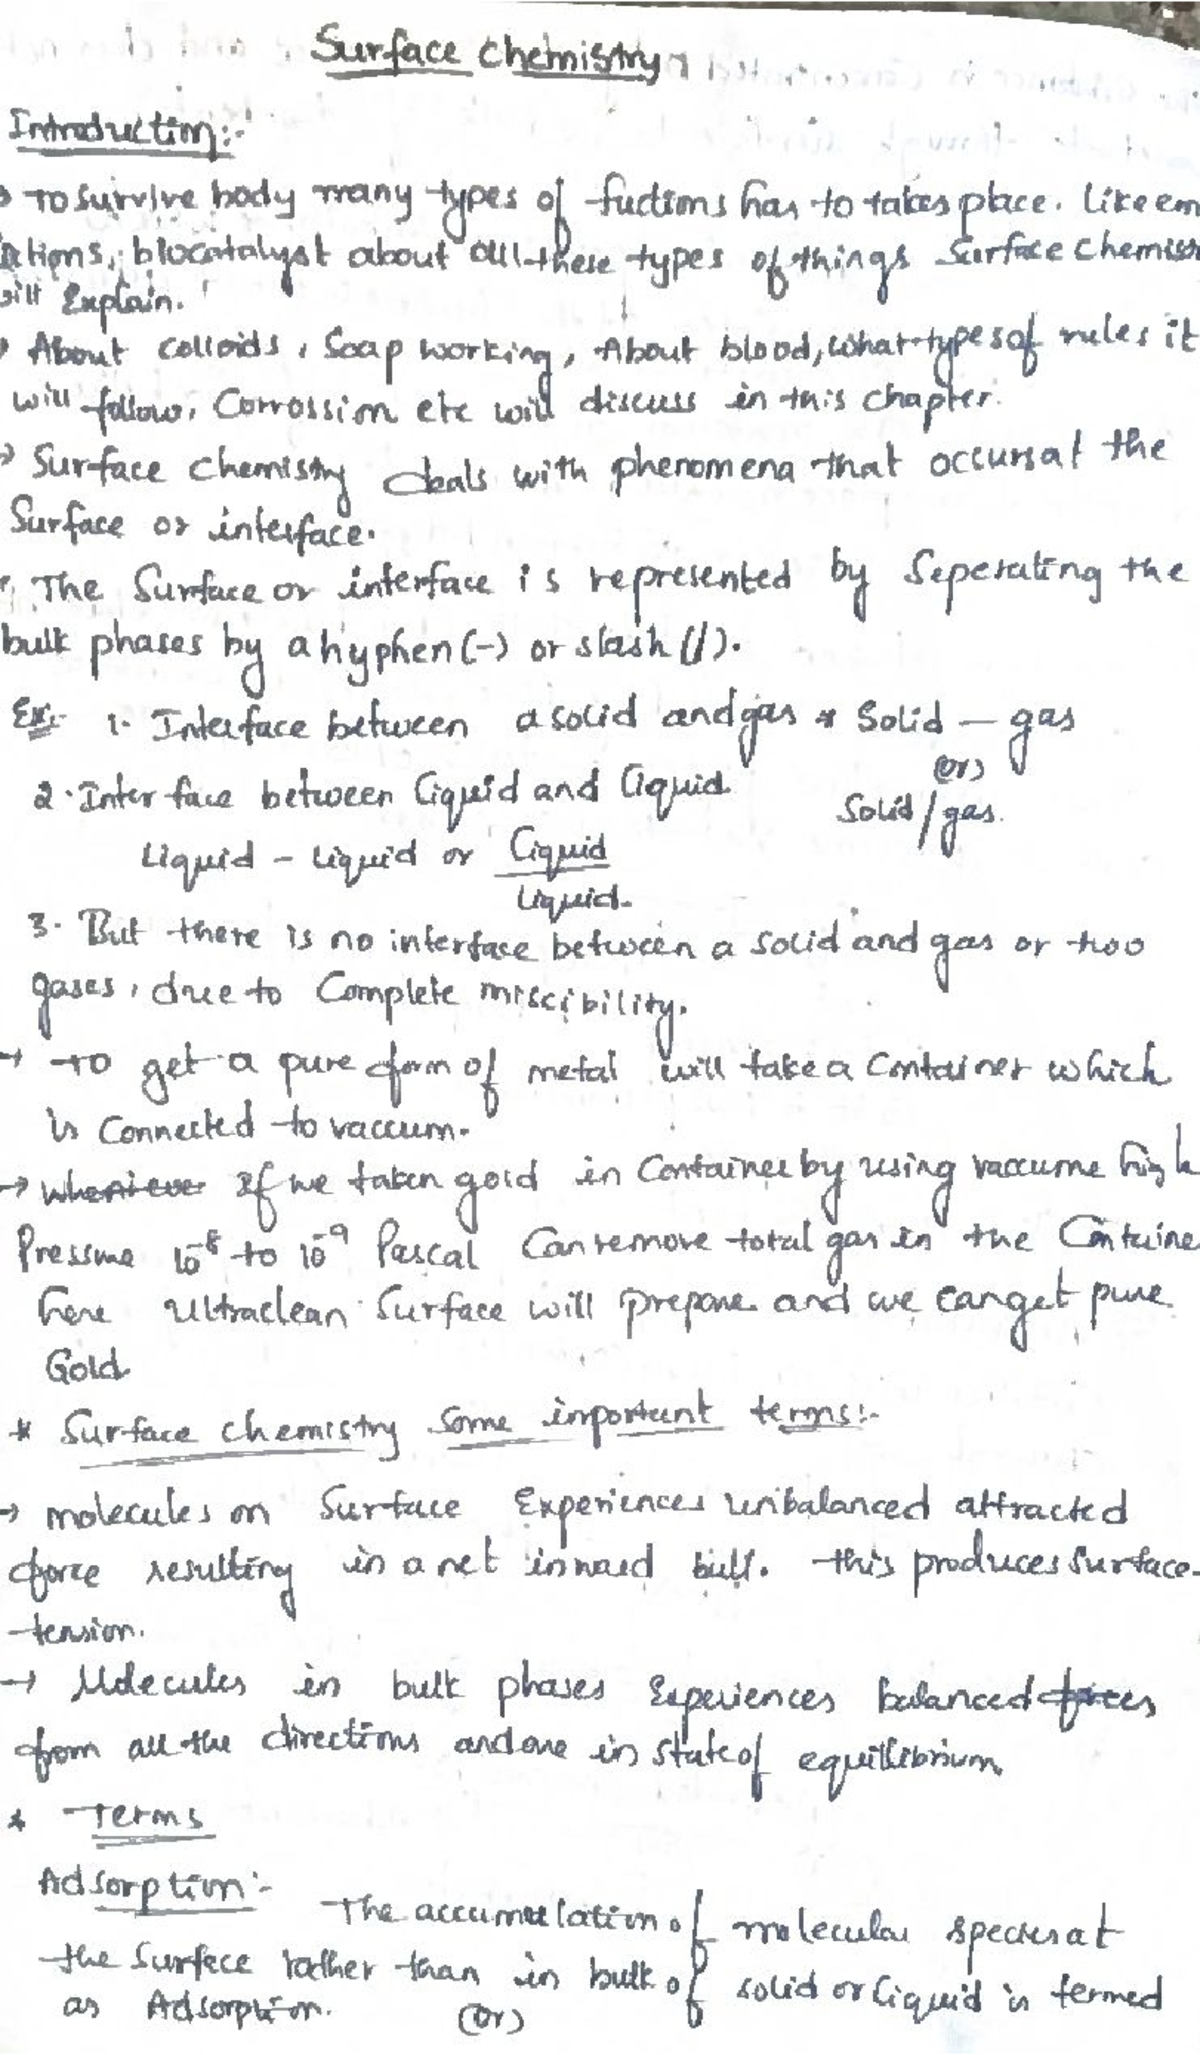 Surface chemistry
Introduction:-
→ To survive body many types of fuctions has to takes place. Like em
ations, biocatalyst about all these types of things Surface Chemist
will Explain.
→ About colloids, Soap working, About blood, what types of rules it
will follow, Corrossion etc will discuss in this chapter.
→ Surface chemistry deals with phenomena that occurs at the
Surface or interface.
The Surface or interface is represented by Seperating the
bulk phases by a hyphen (-) or slash (/).
Ex:- 1. Interface between a solid and gas Solid - gas
(or)
2. Interface between liquid and liquid.
Solid/gas.
Liquid - Liquid or Liquid
Liquid.
3. But there is no interface between a solid and gas or two
gases, due to Complete miscibility.
→ To get a pure form of metal will take a Container which
is Connected to vaccum.
→ If we taken gold in Container by using vaccume high
Pressure 10⁻⁸ to 10⁻⁹ Pascal Can remove total gas in the Containe
here Ultraclean Surface will prepare and we can get pure
Gold
* Surface chemistry Some important terms:-
→ molecules on Surface Experiences unbalanced attracted
force resulting in a net inward bull. this produces Surface-
tension.
→ Molecules in bulk phases Experiences balanced forces
from all the directions and are in state of equillibrium.
* Terms
Adsorption:-
The accumulation of molecular species at
the Surface rather than in bulk of solid or liquid is termed
as Adsorption. (or)